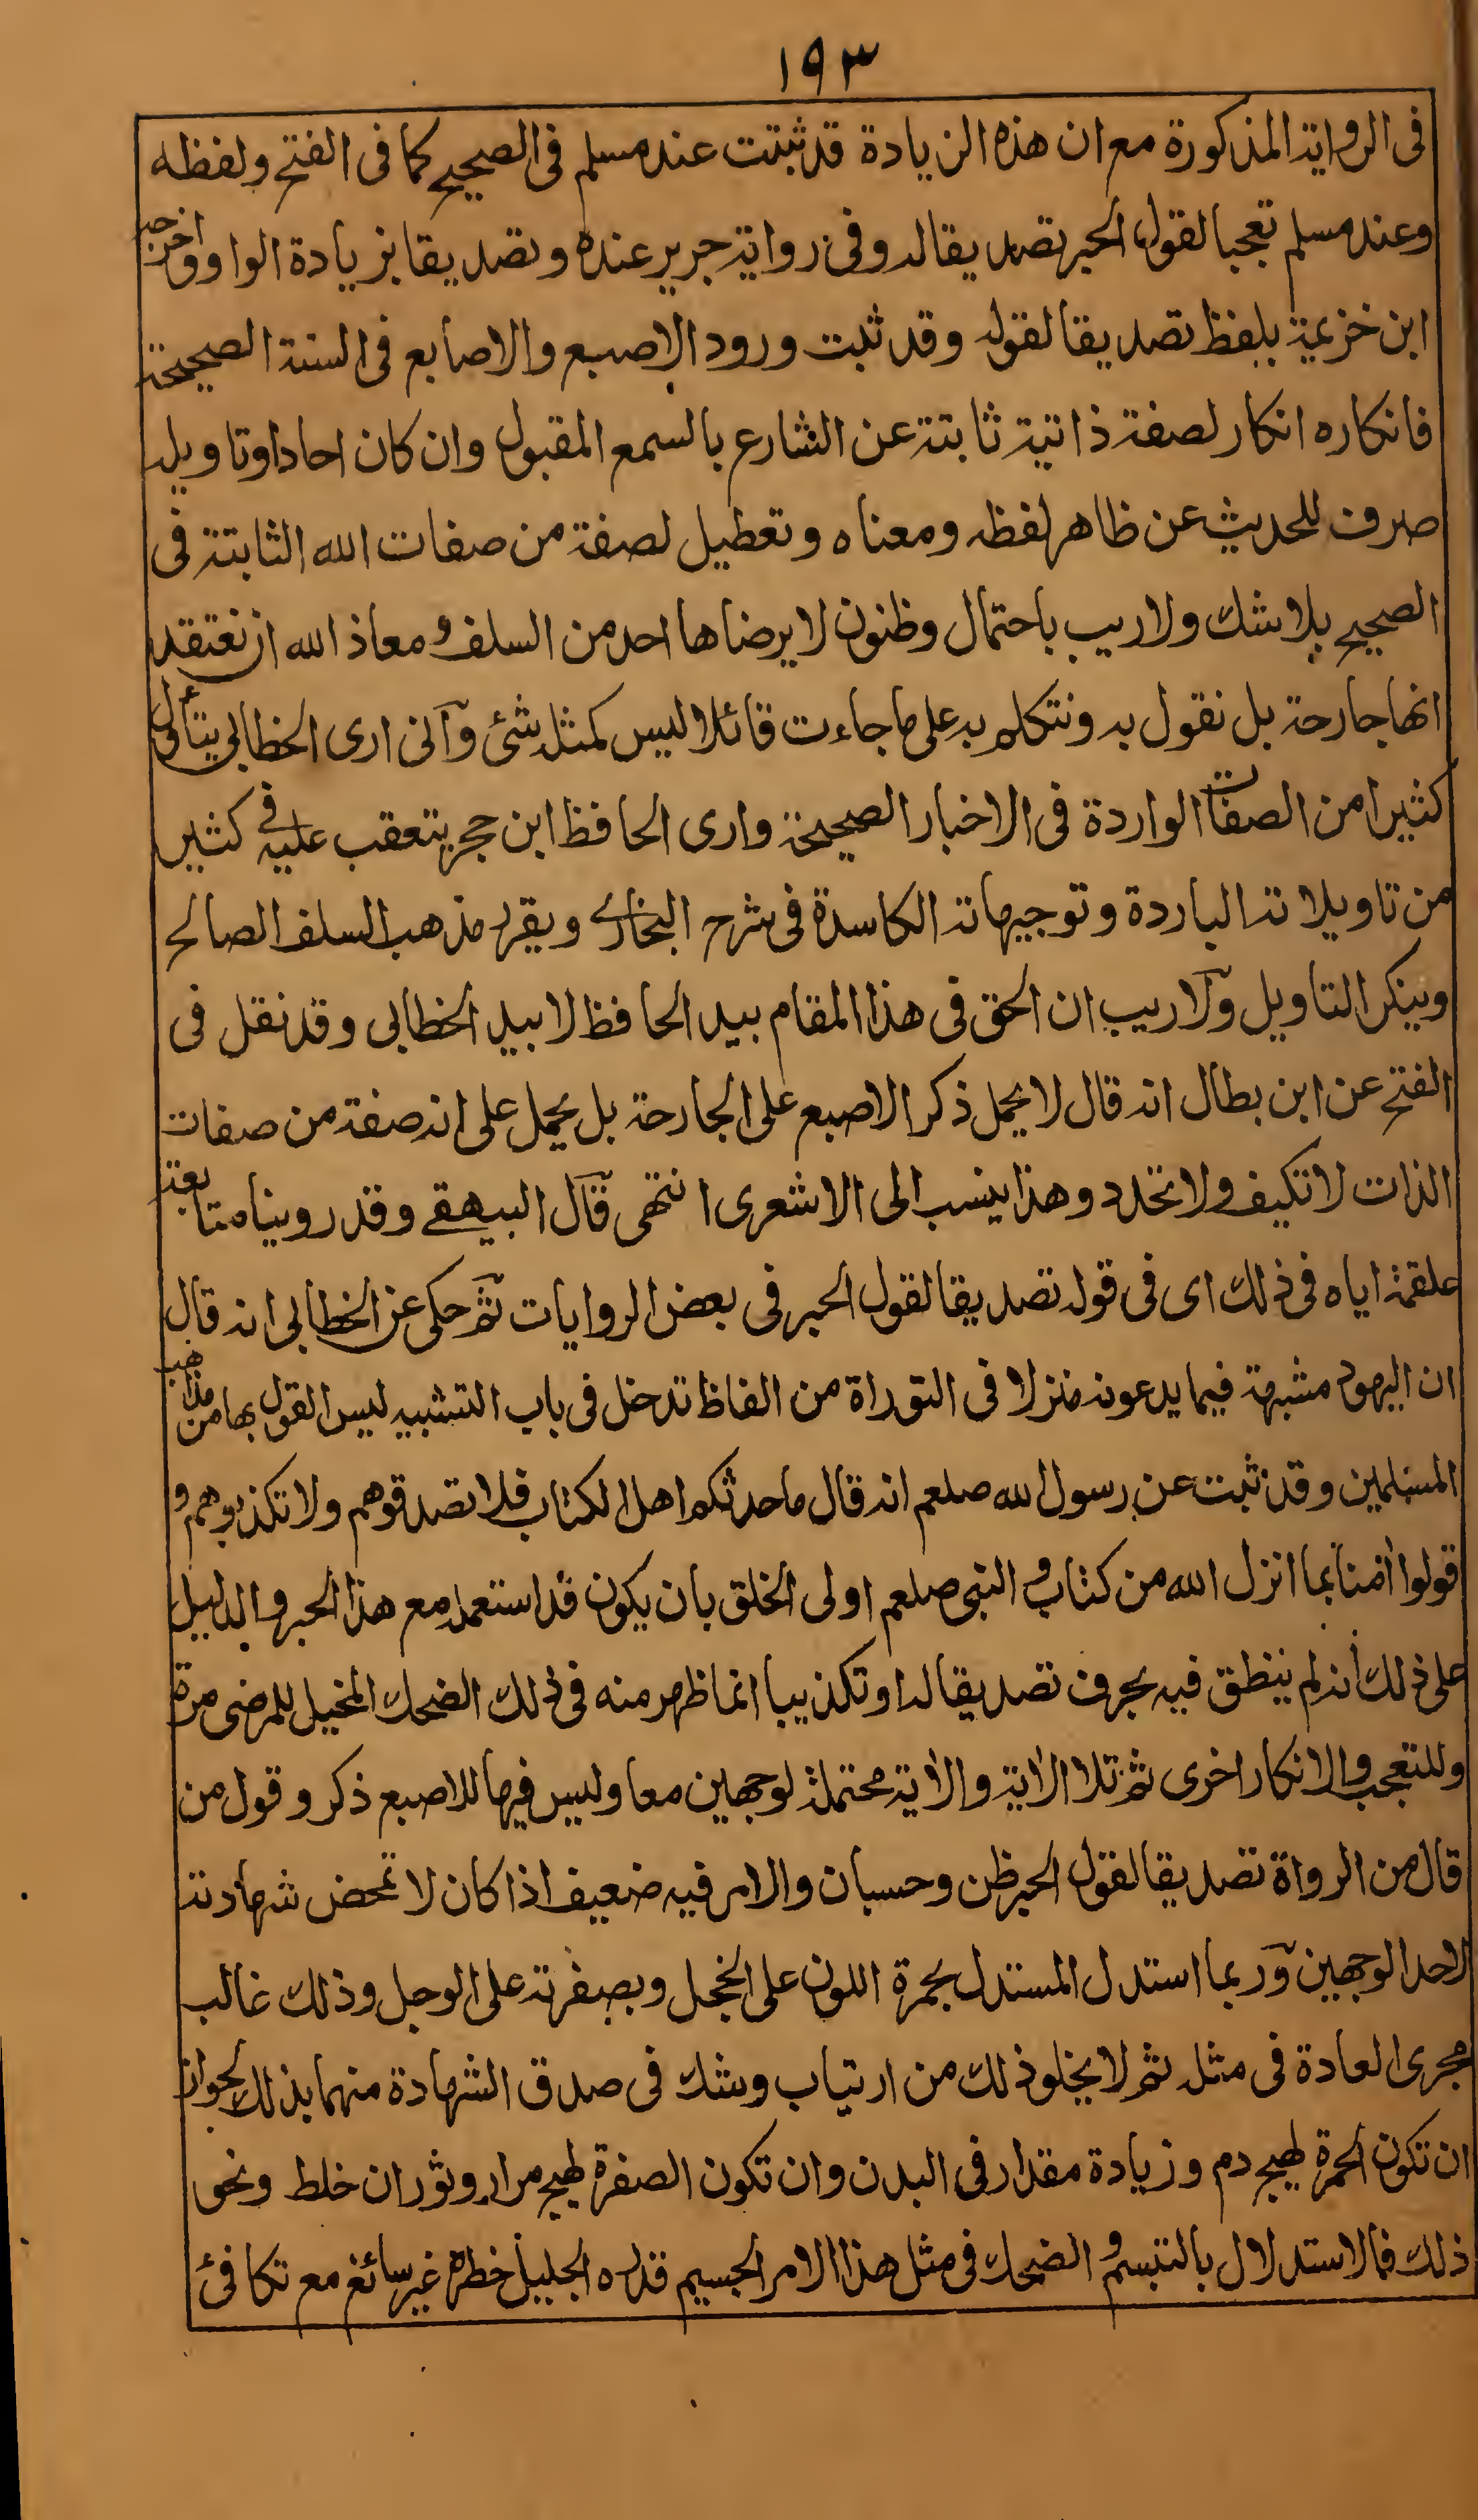 ١٩٣
فى الرواية المذكورة مع ان هذه الزيادة قد ثبتت عند مسلم فى الصحيح كما فى الفتح ولفظه
وعند مسلم تعجبا لقول الحبر تصديقا له وفى رواية جرير عنده وتصديقا بزيادة الواو واخرجه
ابن خزيمة بلفظ تصديقا لقوله وقد ثبت ورود الاصبع والاصابع فى السنة الصحيحة
فانكاره انكار لصفة ذاتية ثابتة عن الشارع بالسمع المقبول وان كان احادا وتاويله
صرف للحديث عن ظاهر لفظه ومعناه وتعطيل لصفة من صفات الله الثابتة فى
الصحيح بلا شك ولا ريب باحتمال وظنون لا يرضاها احد من السلف ومعاذ الله ان نعتقد
انها جارحة بل نقول به ونتكلم به على ما جاءت قائلا ليس كمثله شئ وآنى ارى الخطابى يتأول
كثيرا من الصفات الواردة فى الاخبار الصحيحة وارى الحافظ ابن حجر يتعقب عليه فى كثير
من تاويلاته الباردة وتوجيهاته الكاسدة فى شرح البخارى ويقرر مذهب السلف الصالح
وينكر التاويل وآلا ريب ان الحق فى هذا المقام بيد الحافظ لا بيد الخطابى وقد نقل فى
الفتح عن ابن بطال انه قال لا يحمل ذكر الاصبع على الجارحة بل يحمل على انه صفة من صفات
الذات لا تكيف ولا تحدد وهذا ينسب الى الاشعرى انتهى قآل البيهقے وقد روينا متابعة
علقمة اياه فى ذلك اى فى قوله تصديقا لقول الحبر فى بعض الروايات ثم حكى عن الخطابى انه قال
ان اليهود مشبهة فيما يدعونه منزلا فى التوراة من الفاظ تدخل فى باب التشبيه ليس القول بها من مذاهب
المسلمين وقد ثبت عن رسول الله صلعم انه قال ما حدثكم اهل الكتاب فلا تصدقوهم ولا تكذبوهم و
قولوا اٰمنا بما انزل الله من كتاب و النبى صلعم اولى الخلق بان يكون قد استعمله مع هذا الحبر والدليل
على ذلك انه لم ينطق فيه بحرف تصديقا له او تكذيبا انما ظهر منه فى ذلك الضحك المخيل للمرضى مرة
وللتعجب والانكار اخرى ثم تلا الاٰية والاٰية محتملة لوجهين معا وليس فيها للاصبع ذكر وقول من
قال من الرواة تصديقا لقول الحبر ظن وحسبان والامر فيه ضعيف اذا كان لا تمحض شهادته
لاحد الوجهين وآربما استدل المستدل بحمرة اللون على الخجل وبصفرته على الوجل وذلك غالب
مجرى العادة فى مثله ثم لا يخلو ذلك من ارتياب وشك فى صدق الشهادة منهما بذلك لجواز
ان تكون الحمرة لهيج دم وزيادة مقدار فى البدن وان تكون الصفرة لهيج مرار وثوران خلط ونحو
ذلك فالاستدلال بالتبسم و الضحك فى مثل هذا الامر الجسيم قدره الجليل خطره غير سائغ مع تكافئ